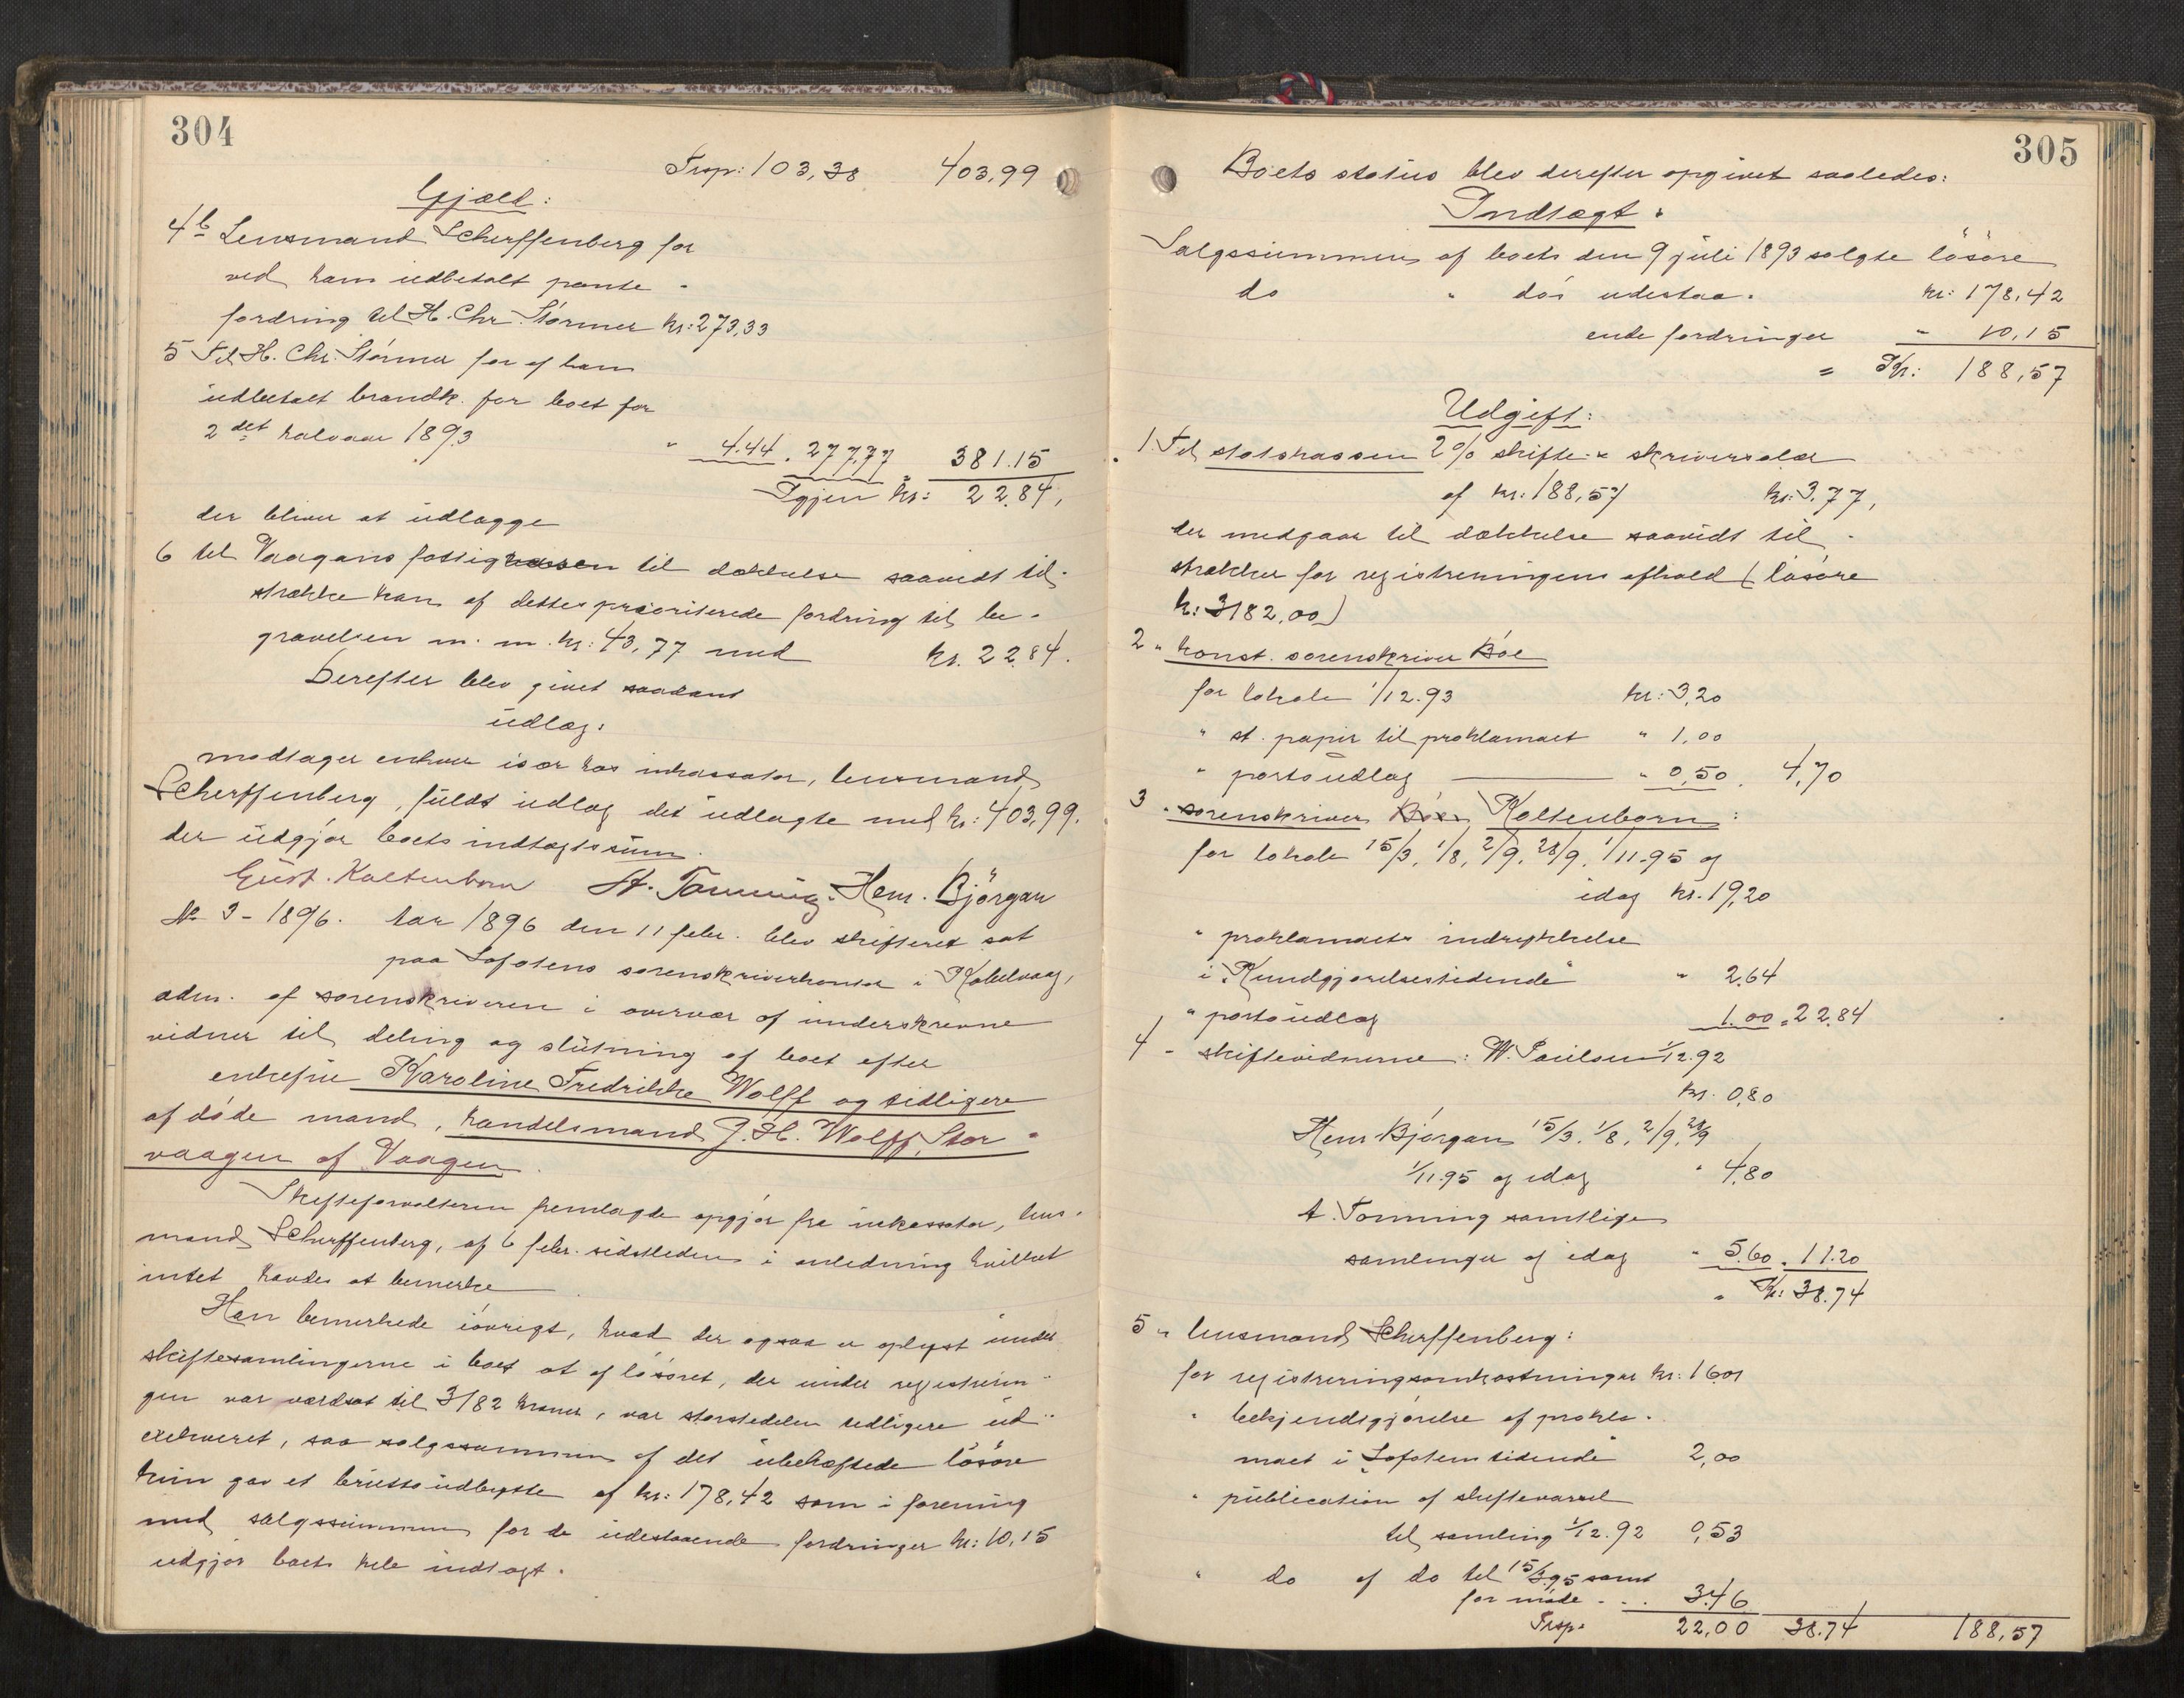 304
Trsp: 103,38 403,99
Gjæld:
4b Lensmand Scherffenberg for
ved ham udbetalt pante-
fordring til H. Chr. Störmer kr: 273,33
5 Til H. Chr. Störmer for af ham
udbetalt brandk. for boet for
2det halvaar 1893 " 4.44 . 277,77 381.15
Igjen kr: 22.84,
der bliver at udlægge
6 til Vaagans fattigkassen til dækkelse saavidt til-
strække kan af dettes prioriterede fordring til be-
gravelsen m. m. kr: 43,77 med kr. 22.84.
Derefter blev givet saadant
udlæg:
modtager enhver især hos inkassator, lensmand
Scherffenberg, fuldt udlæg det udlagte med kr: 403,99.
der udgjör boets indtægtssum.
Gust. Kaltenborn A. Tonning. Henr. Björgan
No 3-1896. Aar 1896 den 11 febr. blev skifteret sat
paa Lofotens sorenskriverkontor i Kabelvaag,
adm. af sorenskriveren i overvær af underskrevne
vidner til deling og slutning af boet efter
enkefru Karoline Fredrikke Wolff og tidligere
afdöde mand, handelsmand J. H. Wolff, Stor-
vaagen af Vaagen.
Skifteforvalteren fremlagde opgjör fra inkassator, lens-
mand Scherffenberg, af 6 febr. sidstleden i anledning hvilket
intet havdes at bemerke.
Han bemerkede iövrigt, hvad der ogsaa er oplyst under
skiftesamlingerne i boet at af lösöret, der under registrerin-
gen var værdsat til 3182 kroner, var störstedelen tidligere ud-
exekveret, saa salgssummen af det ubeheftede lösöre
kun gav et bruttoudbytte af kr: 178,42 som i forening
med salgssummen for de udestaaende fordringer kr: 10,15
udgjör boets hele indtægt.
305
Boets status blev derefter opgivet saaledes:
Indtægt:
Salgssummen af boets den 9 juli 1893 solgte lösöre
do " do's udestaa- kr: 178,42
ende fordringer " 10,15
= Kr: 188,57
Udgift:
1. Til statskassen 2% skifte- & skriversalær
af kr: 188,57 kr: 3.77,
der medgaar til dækkelse saavidt til-
strækker for registreringens afhold (lösöre
kr: 3182,00)
2 " konst. sorenskriver Böe
for lokale 1/12.93 kr: 3,20
" st. papir til proklamaet " 1,00
" portoudlæg " 0,50. 4,70
3 " sorenskriver Böe Kaltenborn:
for lokale 15/3, 1/8, 2/9, 28/9, 1/11.95 og
idag kr. 19,20
" proklamaets indrykkelse
i "Kundgjørelsestidende" " 2.64
" portoudlæg 1.00 = 22.84
4 " skiftevidnerne: W. Paulsen 1/12.92
kr. 0,80
Henr. Björgan 15/3, 1/8, 2/9, 28/9
1/11.95 og idag " 4,80
A. Tonning samtlige
samlinger og idag " 5.60 . 11.20
" Kr: 38.74
5 " lensmand Scherffenberg:
for registreringsomkostninger kr: 16.01
" bekjendtgjörelse af prokla-
maet i "Lofotens tidende" 2,00
" publication af skiftevarsel
til samling 1/12.92 0,53
" do af do til 15/3.95 samt
for möde . . . 3.46
Trsp. 22,00 38.74 188,57